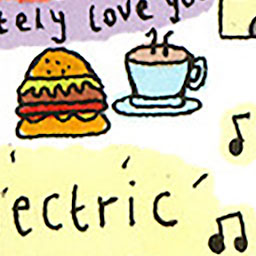 tely love you
ectric